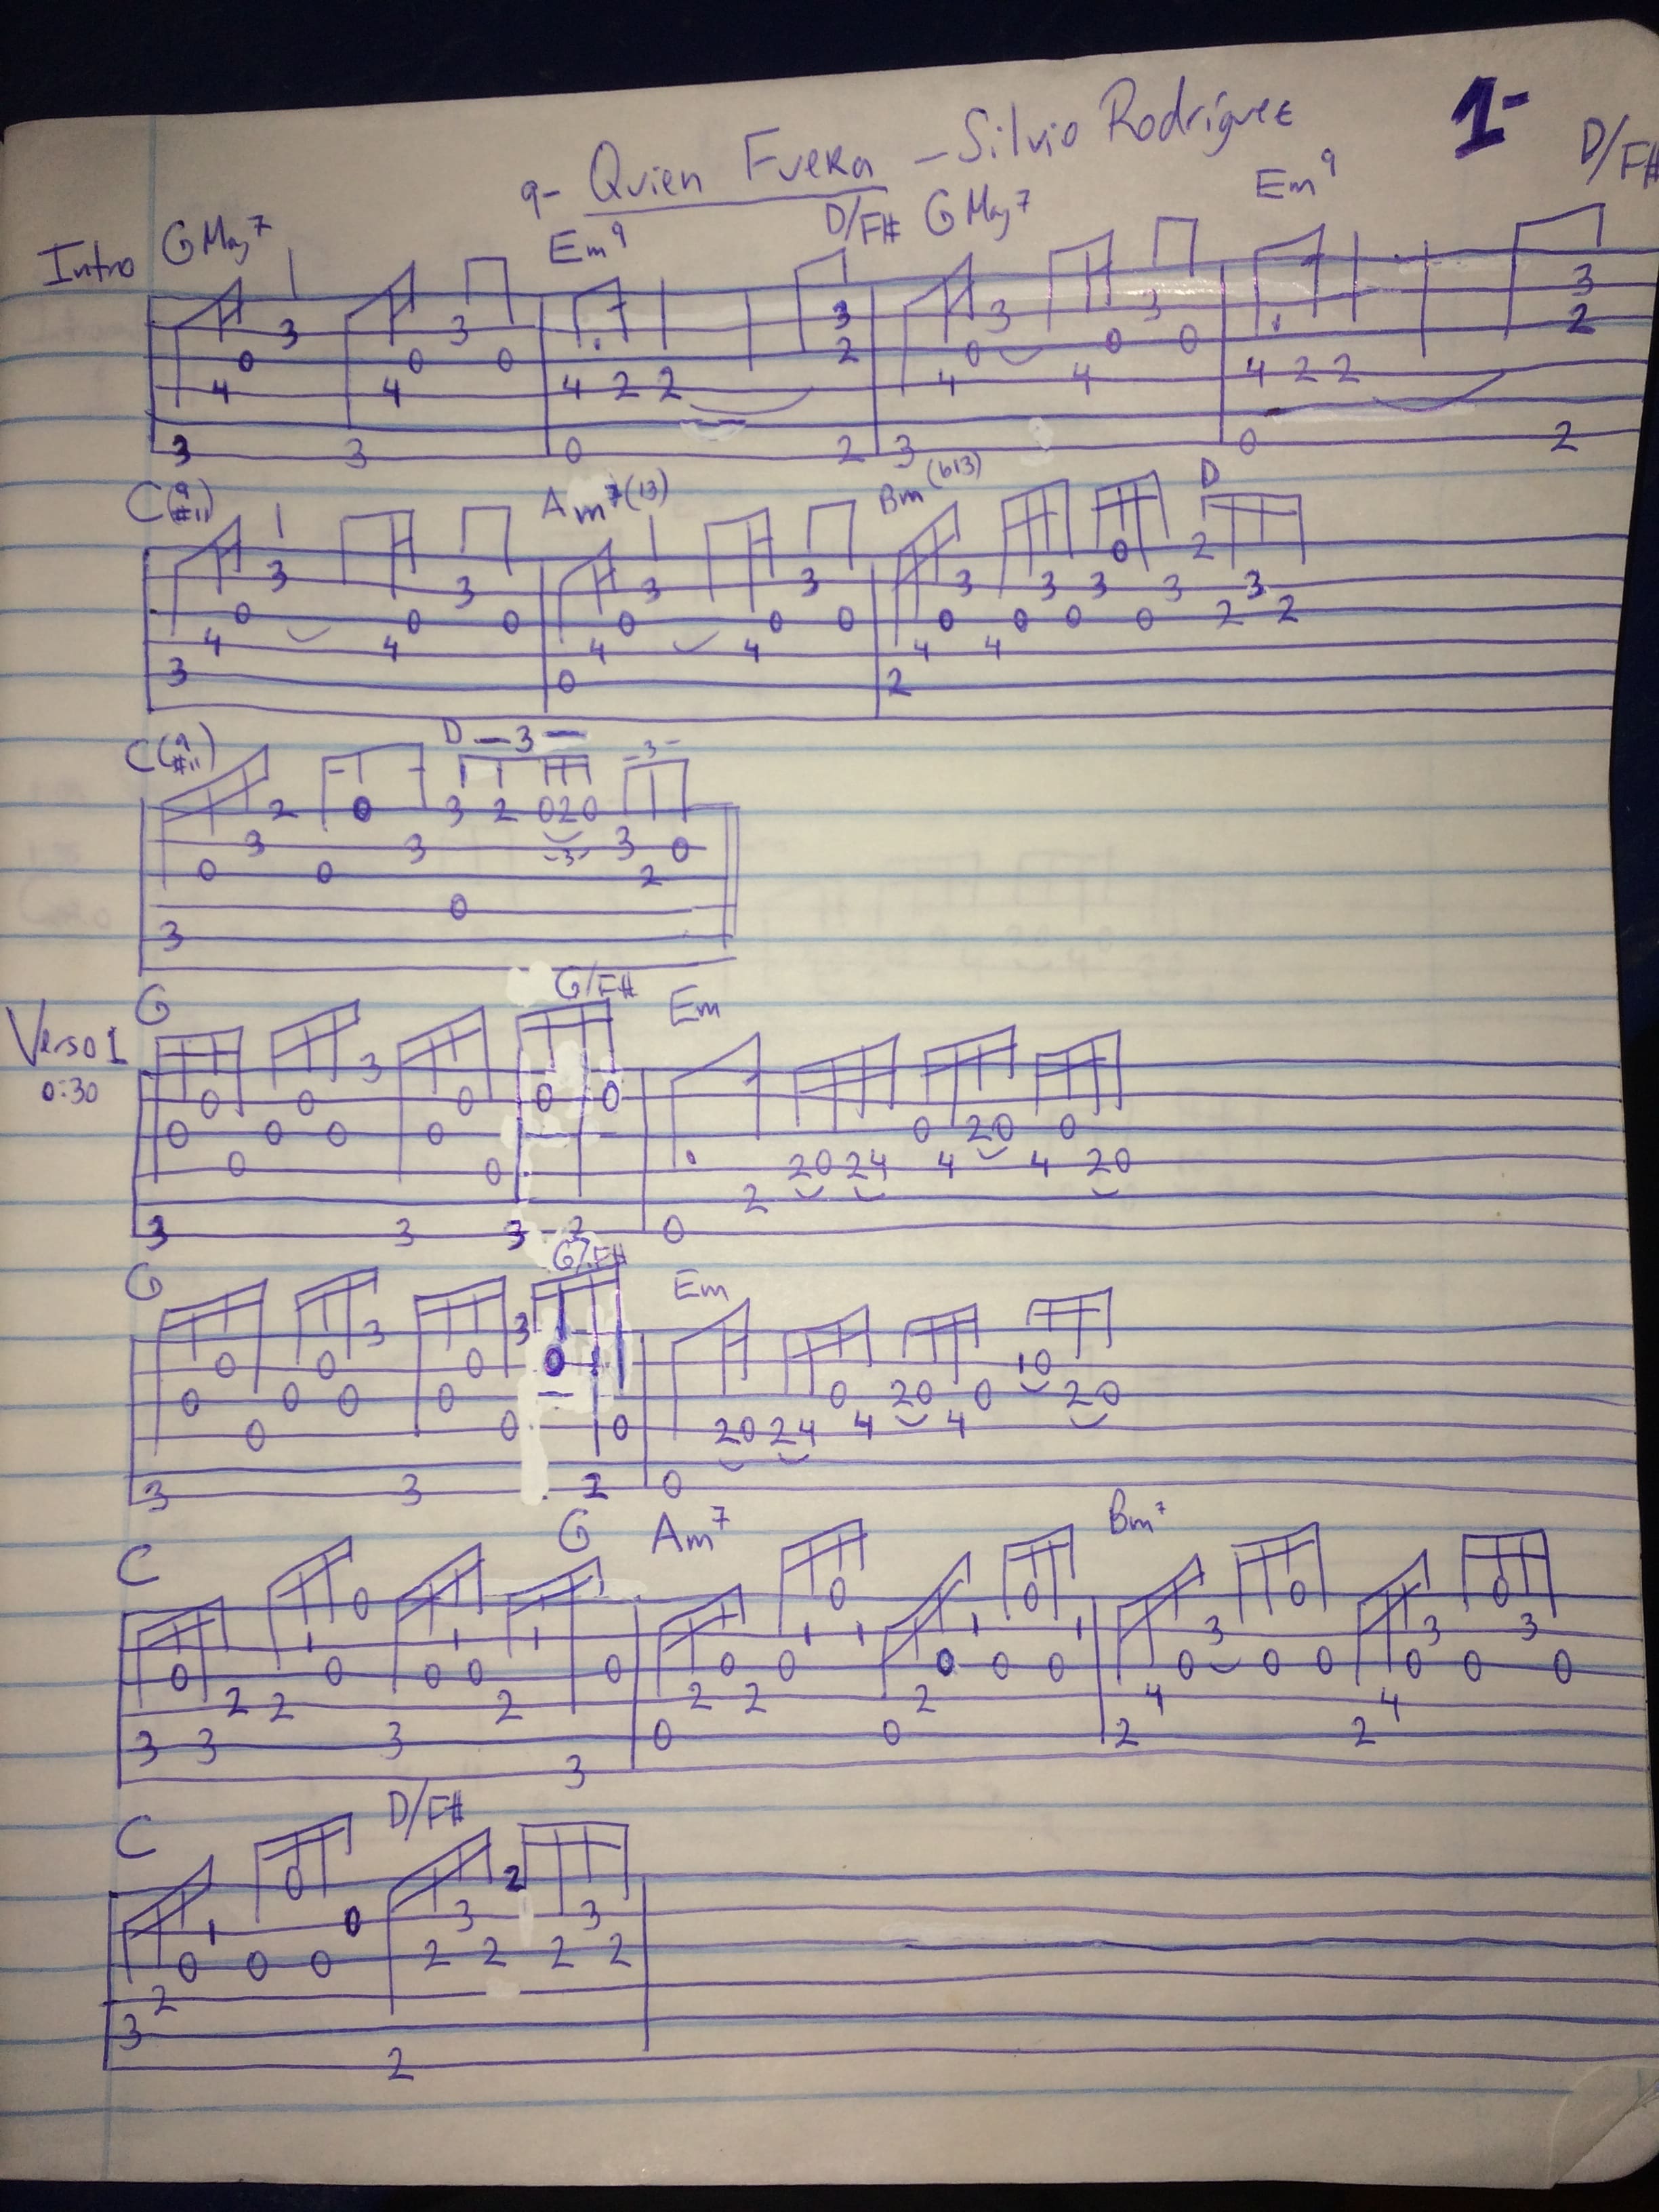 9- Quien Fuera - Silvio Rodríguez 1-
Intro GMaj7 Em9 D/F# GMaj7 Em9 D/F#
3 3 3 3 3 3
0 0 0 2 0 0 0 2
4 4 4 2 2 4 4 4 2 2
3 3 0 2 3 0 2
C(9 #11) Am7(13) Bm(b13) D
0 2
3 3 3 3 3 3 3 3 3
0 0 0 0 0 0 0 0 0 0 2 2
4 4 4 4 4 4
3 0 2
C(9 #11) D -3- -3-
2 0 3 2 0 2 0
3 3 -3- 3 0
0 0 2
0
3
Verso 1 G G/F# Em
0:30
3
0 0 0 0 0
0 0 0 0 0 2 0 0
0 0 2 0 2 4 4 4 2 0
2
3 3 3 2 0
G G/F# Em
3 3
0 0 0 0 1 0
0 0 0 0 0 2 0 0 2 0
0 0 0 2 0 2 4 4 4
3 3 2 0
C G Am7 Bm7
0 0 0 0 0
1 1 1 1 1 1 1 3 3 3
0 0 0 0 0 0 0 0 0 0 0 0 0 0 0 0
2 2 2 2 2 2 4 4
3 3 3 0 0 2 2
3
C D/F#
0 2
1 0 3 3
0 0 0 2 2 2 2
2
3
2